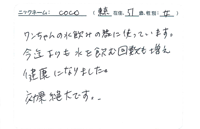 ニックネーム: COCO (東京在住, 51歳, 性別: 女)
ワンちゃんの水飲みの器に使っています。
今迄よりも水を飲む回数も増え
健康になりました。
効果絶大です。